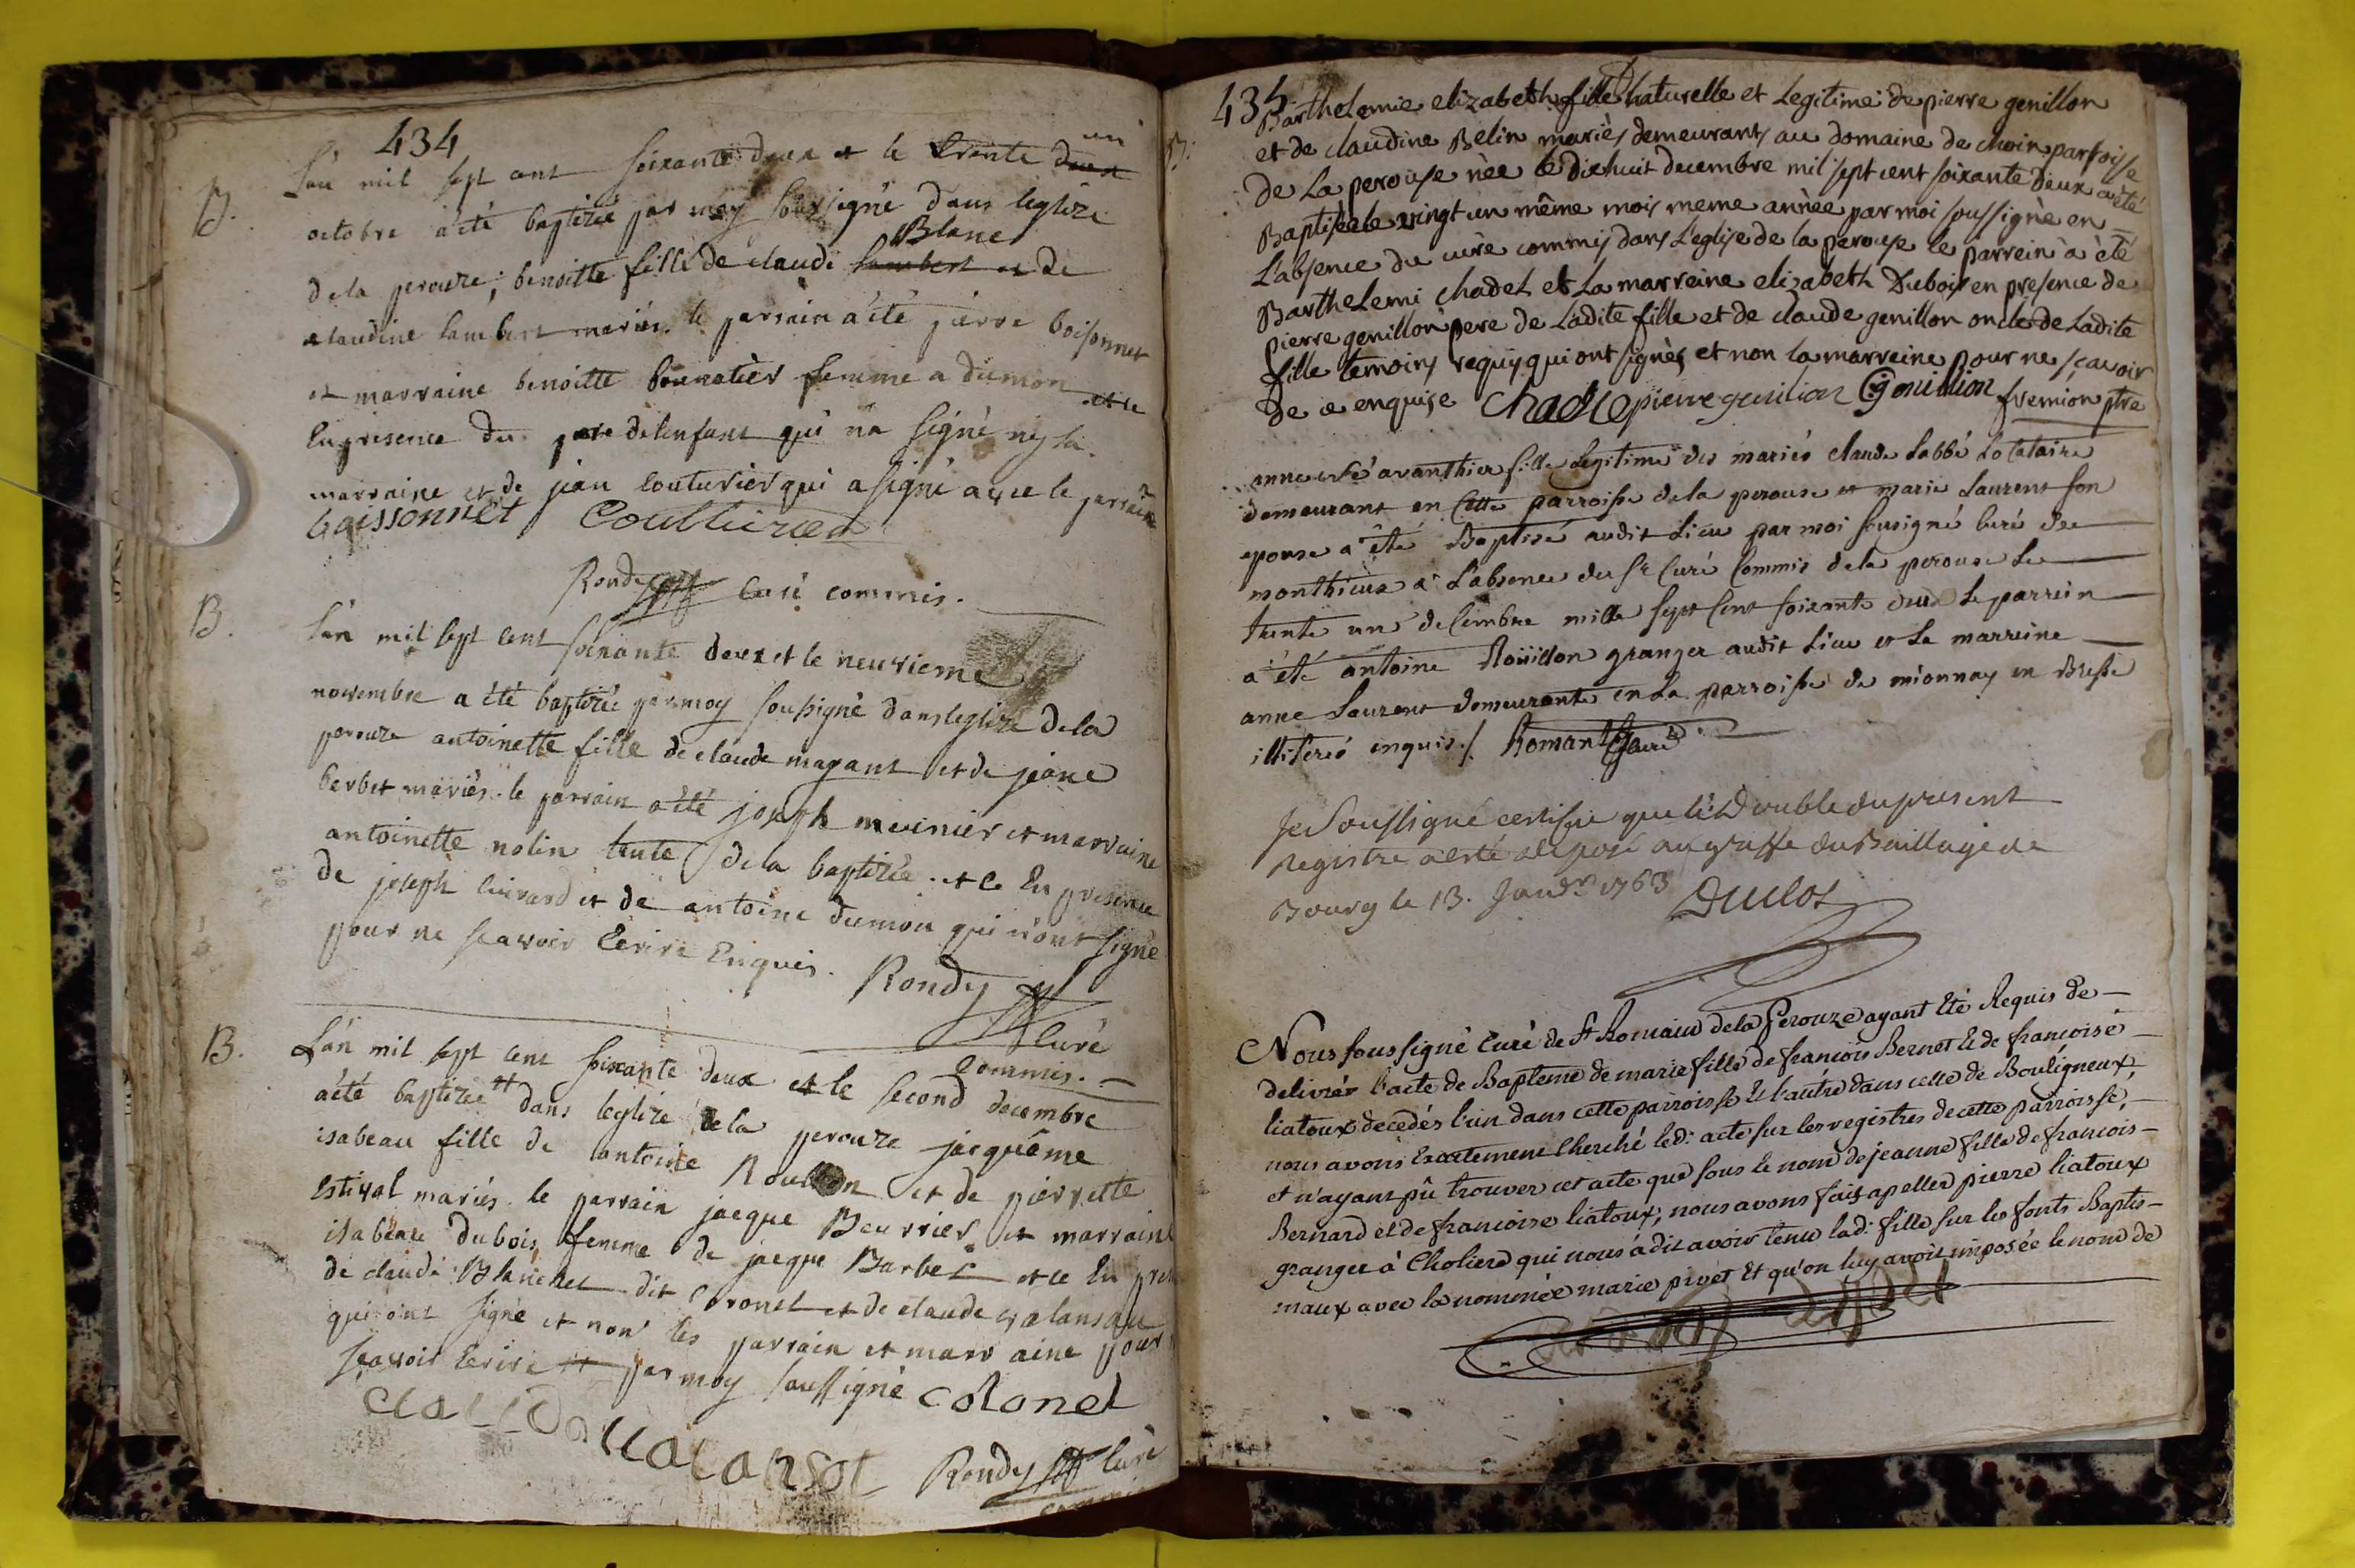 434
B.
L'an mil sept cent soixante deux et le trente deux un
octobre a été baptizée par moy soussigné dans leglize
dela perouze, benoitte fille de claude lambert et Blanc de
claudine lambert mariés. le parrain a été pierre boisonnet
et marraine benoitte bonnatier femme a dumon et ce
En presence du pere delenfant qui n'a signé ny la
marraine et de jean couturier qui a signé avec le parrain
boissonnet Coutturier
Rondy Curé commis.
B.
L'an mil sept cent soixante deux et le neuvieme
novembre a été baptizée par moy soussigné dans leglize dela
perouze antoinette fille de claude mayant et de jeane
berbet mariés. le parrain a été joseph meunier et marraine
antoinette nolin tante dela baptizée. et ce En presence
de joseph et de antoine dumon qui n'ont signé
pour ne scavoir Ecrire Enquis. Rondy
Curé
commis.
B.
L'an mil sept cent soixante deux et le second decembre
a été baptizée dans leglize dela perouze jacquême
isabeau fille de antoine et de pierrette
Estival mariés. le parrain jacque Beurrier et marraine
isabeau dubois femme de jacque Barbet et ce En
de claude Blanchet dit Coronel et de claude valansau
qui ont signé et non les parrain et marraine pour
scavoir Ecrire par moy soussigné colonel
Rondy Curé
435
B.
Barthelemie elizabeth fille naturelle et Legitime de pierre genillon
et de claudine Belin mariés demeurants au domaine de choin parroisse
de La perouse née le dixhuit decembre mil sept cent soixante deux a été
Baptisée le vingt un même mois meme année par moi soussigné en
L'absence du curé commis dans L'eglise de la perouse le parrein a été
Barthelemi chadel et La marreine elizabeth Dubois en presence de
pierre genillon pere de Ladite fille et de claude genillon oncle de Ladite
fille temoins requis qui ont signés et non la marreine pour ne sçavoir
de ce enquise pierre genilion fremion ptre
anne née avanthier fille Legitime des mariés claude Labbé Locataire
demeurant en Cette parroisse dela perouse et marie Laurent son
epouse a été Baptisé audit Lieu par moi sousigné Curé de
monthieux a L'absence du Sr Curé Commis dela perouse Le
trente un decembre mille sept cent soixante deux Le parrein
a été antoine Roüillon granger audit Lieu et La marreine
anne Laurent demeurante en La parroisse de mionnay en Bresse
illiterés enquis./. Romant Curé
Je Soussigné certifie que le Double du present
Registre a esté deposé au greffe du Baillage de
Bourg le 13. Janvr. 1763
Duclos
Nous sous signé Curé de St Romain dela Perouze ayant Eté Requis de
delivrer l'acte de Bapteme de marie fille de francois Bernet Et de francoise
liatoux decedés l'un dans cette parroisse Et l'autre dans celle de Bouligneux,
nous avons Exactement Cherché led: acte sur les registres de cette parroisse,
et n'ayant pû trouver cet acte que sous le nom de jeanne fille de francois
Bernard et de francoise liatoux, nous avons fait apeller pierre liatoux
granger à Choliere qui nous a dit avoir tenu lad: fille sur les fonts Baptis-
maux avec la nommée marie privet Et qu'on luy avoit imposée le nom de